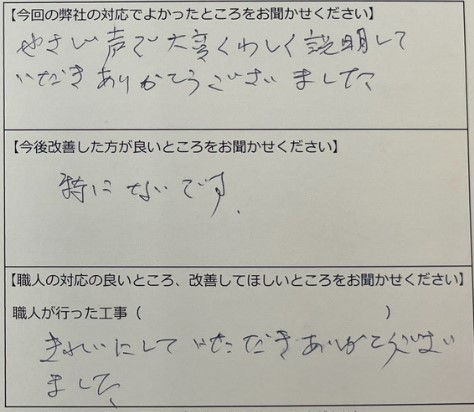 【今回の弊社の対応でよかったところをお聞かせください】
やさしい声で大変くわしく説明して
いただきありがとうございました
【今後改善した方が良いところをお聞かせください】
特にないです.
【職人の対応の良いところ、改善してほしいところをお聞かせください】
職人が行った工事（　　　　　　　　　　　　　　　）
きれいにしていただきありがとうございい
ました、